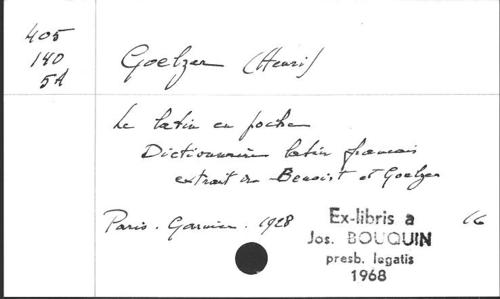 405
140
5A
Goelzer (Henri)
Le latin en poche
Dictionnaire latin français
extrait du Benoist et Goelzer
Paris. Garnier. 1928
16
Ex-libris a
Jos. BOUQUIN
presb. legatis
1968